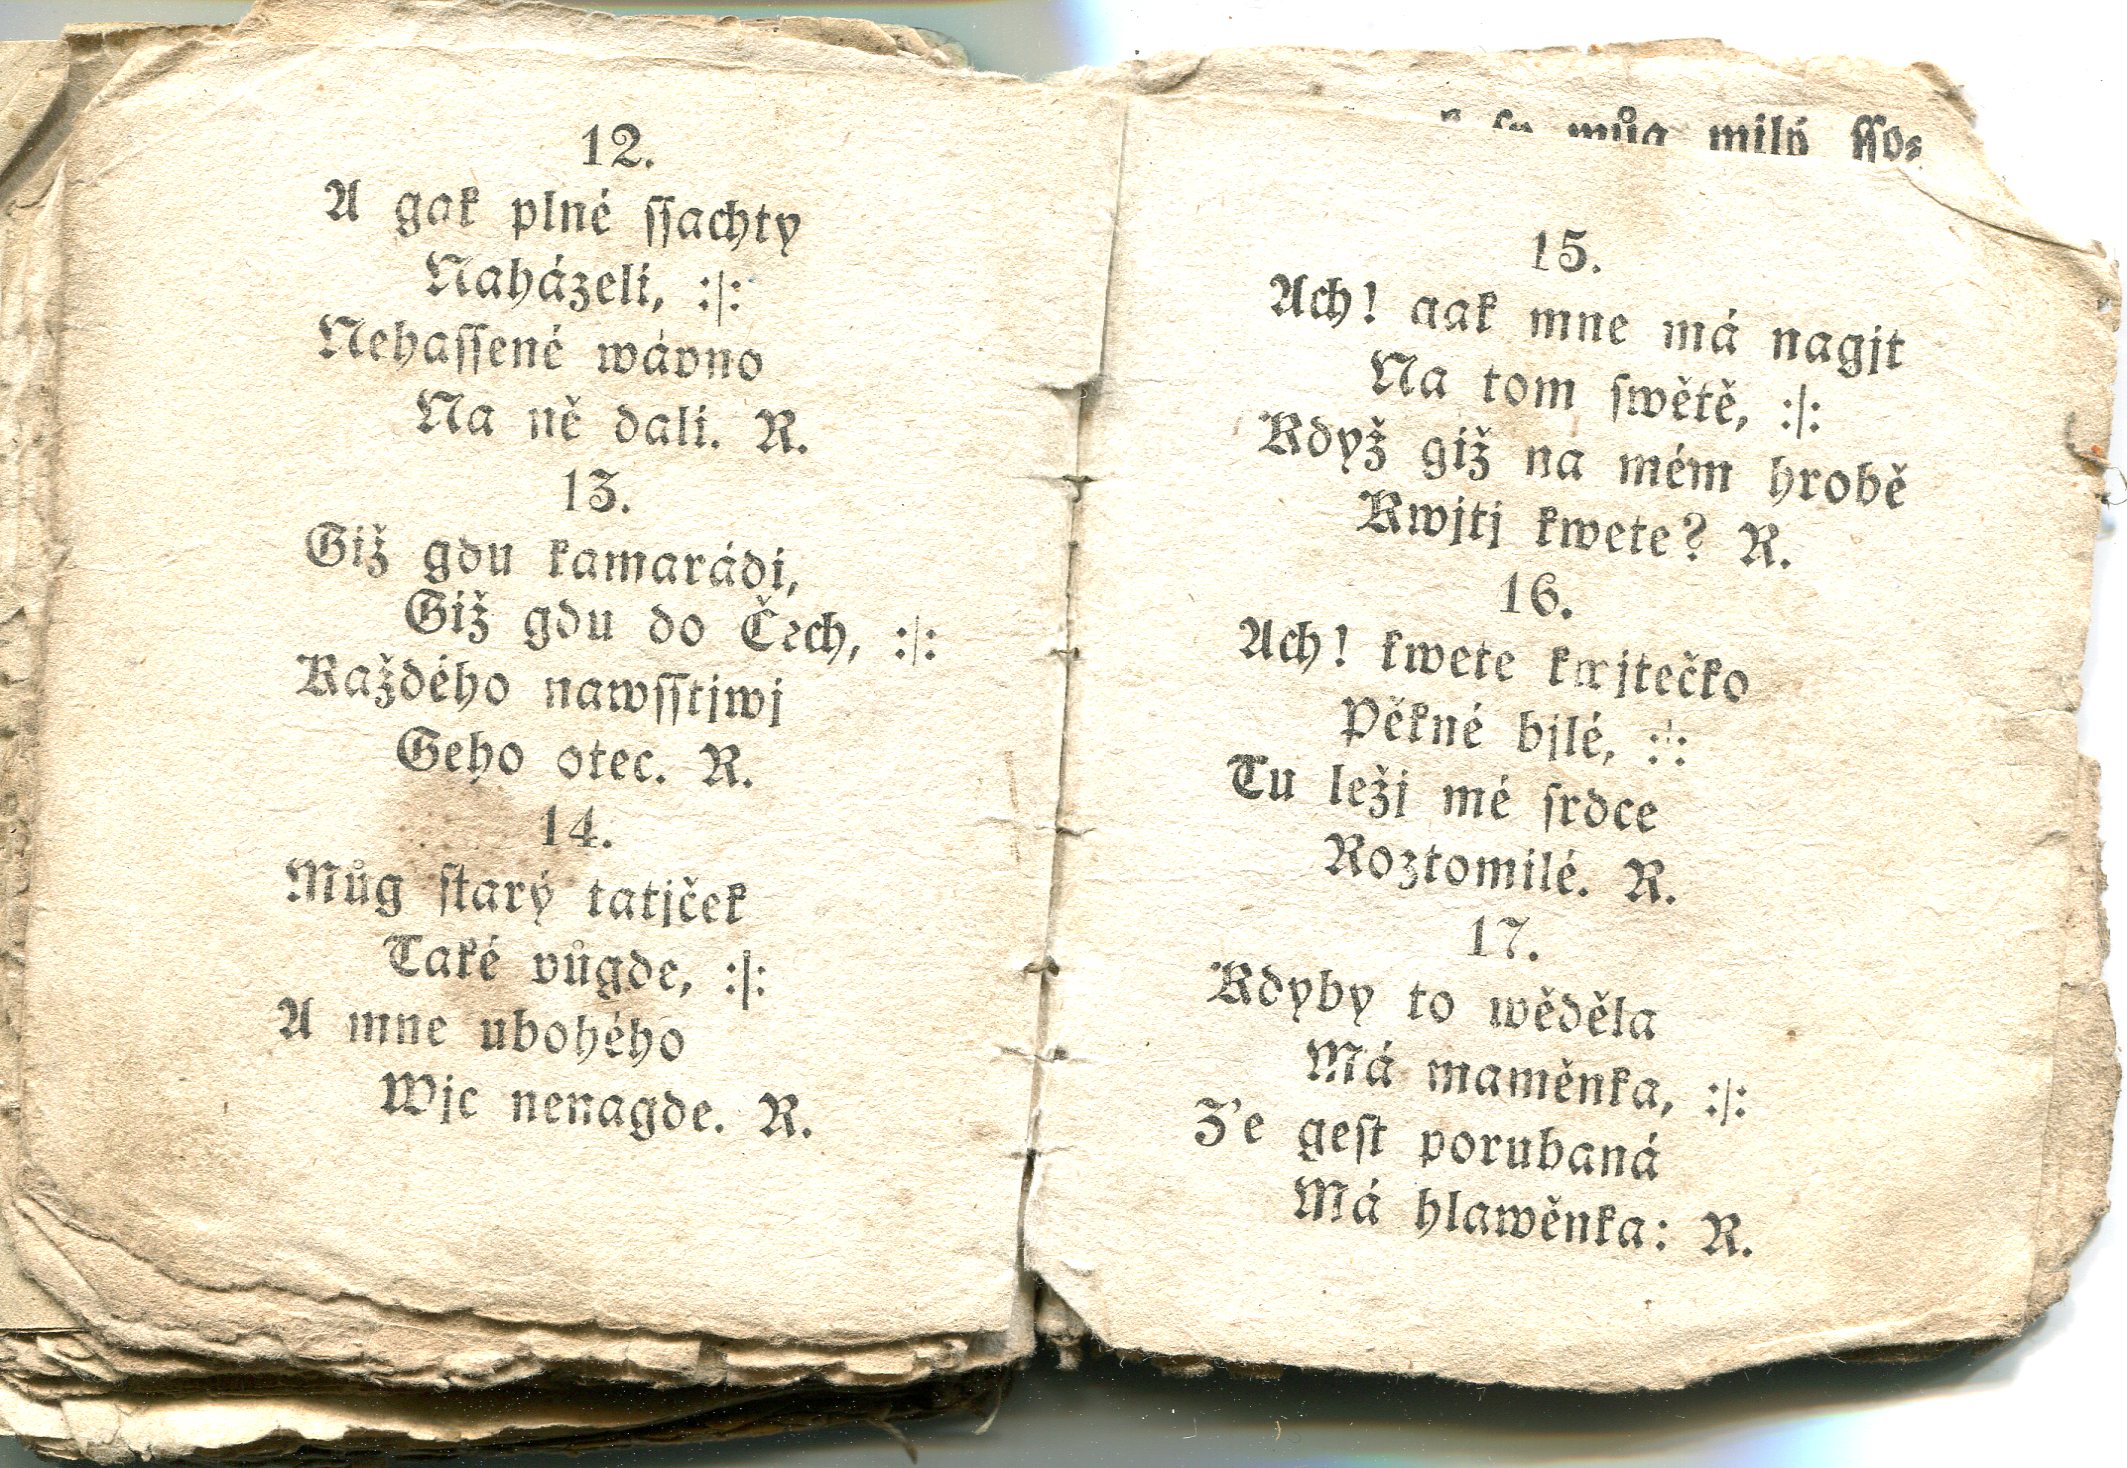 12.
A gak plné ſſachty
Naházeli, :|:
Nehaſſené wávno
Na ně dali. R.
13.
Giž gdu kamarádi,
Giž gdu do Čech, :|:
Každého nawſſtjwj
Geho otec. R.
14.
Můg ſtarý tatjček
Také vůgde, :|:
A mne ubohého
Wjc nenagde. R.
můg milý ſſo⸗
15.
Ach! aak mne má nagjt
Na tom ſwětě, :|:
Když giž na mém hrobě
Kwjtj kwete? R.
16.
Ach! kwete kwjtečko
Pěkné bjlé, :|:
Tu ležj mé ſrdce
Roztomilé. R.
17.
Kdyby to wěděla
Má maměnka, :|:
Z'e geſt porubaná
Má hlawěnka: R.